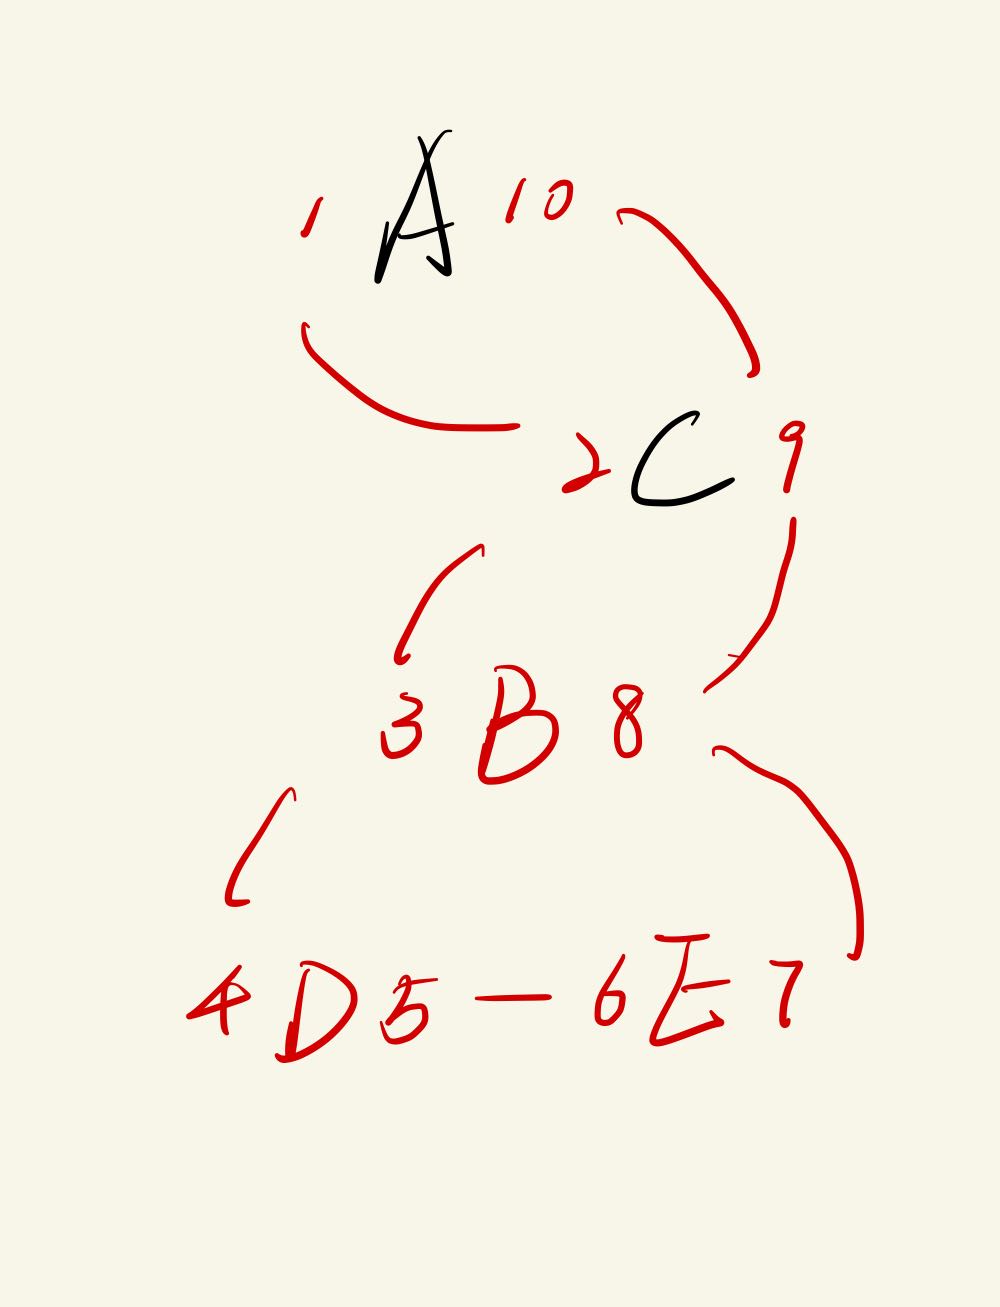 1 A 10
2 C 9
3 B 8
4 D 5 — 6 E 7